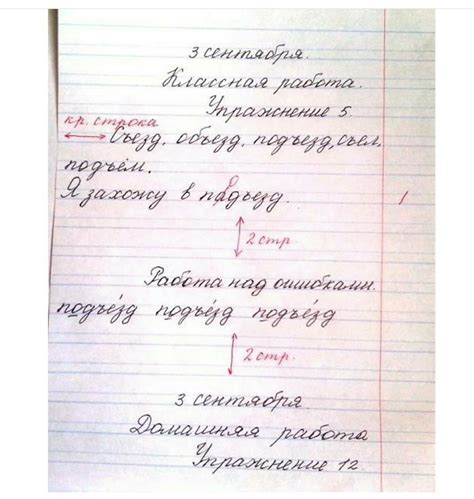 3 сентября.
Классная работа.
Упражнение 5.
кр. строка
Съезд, объезд, подъезд, съем,
подъём.
о
Я захожу в падъезд. 1
2 стр
Работа над ошибками.
подъе́зд подъе́зд подъе́зд
2 стр.
3 сентября.
Домашняя работа
Упражнение 12.